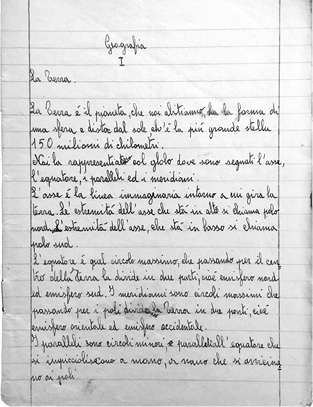 Geografia
I
La Terra.
La Terra é il pianeta, che noi abitiamo, ha la forma di
una sfera e dista dal sole ch'é la piú grande stella
150 milioni di chilometri.
Noi la rappresentiamo col globo dove sono segnati l'asse,
l'equatore, i paralleli ed i meridiani.
L'asse é la linea immaginaria intorno a cui gira la
terra. L'estremitá dell'asse che stá in alto si chiama polo
nord. L'estremitá dell'asse, che stá in basso si chiama
polo sud.
L'equatore é quel circolo massimo, che passando per il cen
tro della terra la divide in due parti, cioé emisfero nord
ed emisfero sud. I meridiani sono circoli massimi che
passando per i poli divide la terra in due parti, cioé
emisfero orientale ed emisfero occidentale.
I paralleli sono circoli minori, e paralleli all'equatore che
si impiccioliscono a mano, a mano che si avvicina
no ai poli